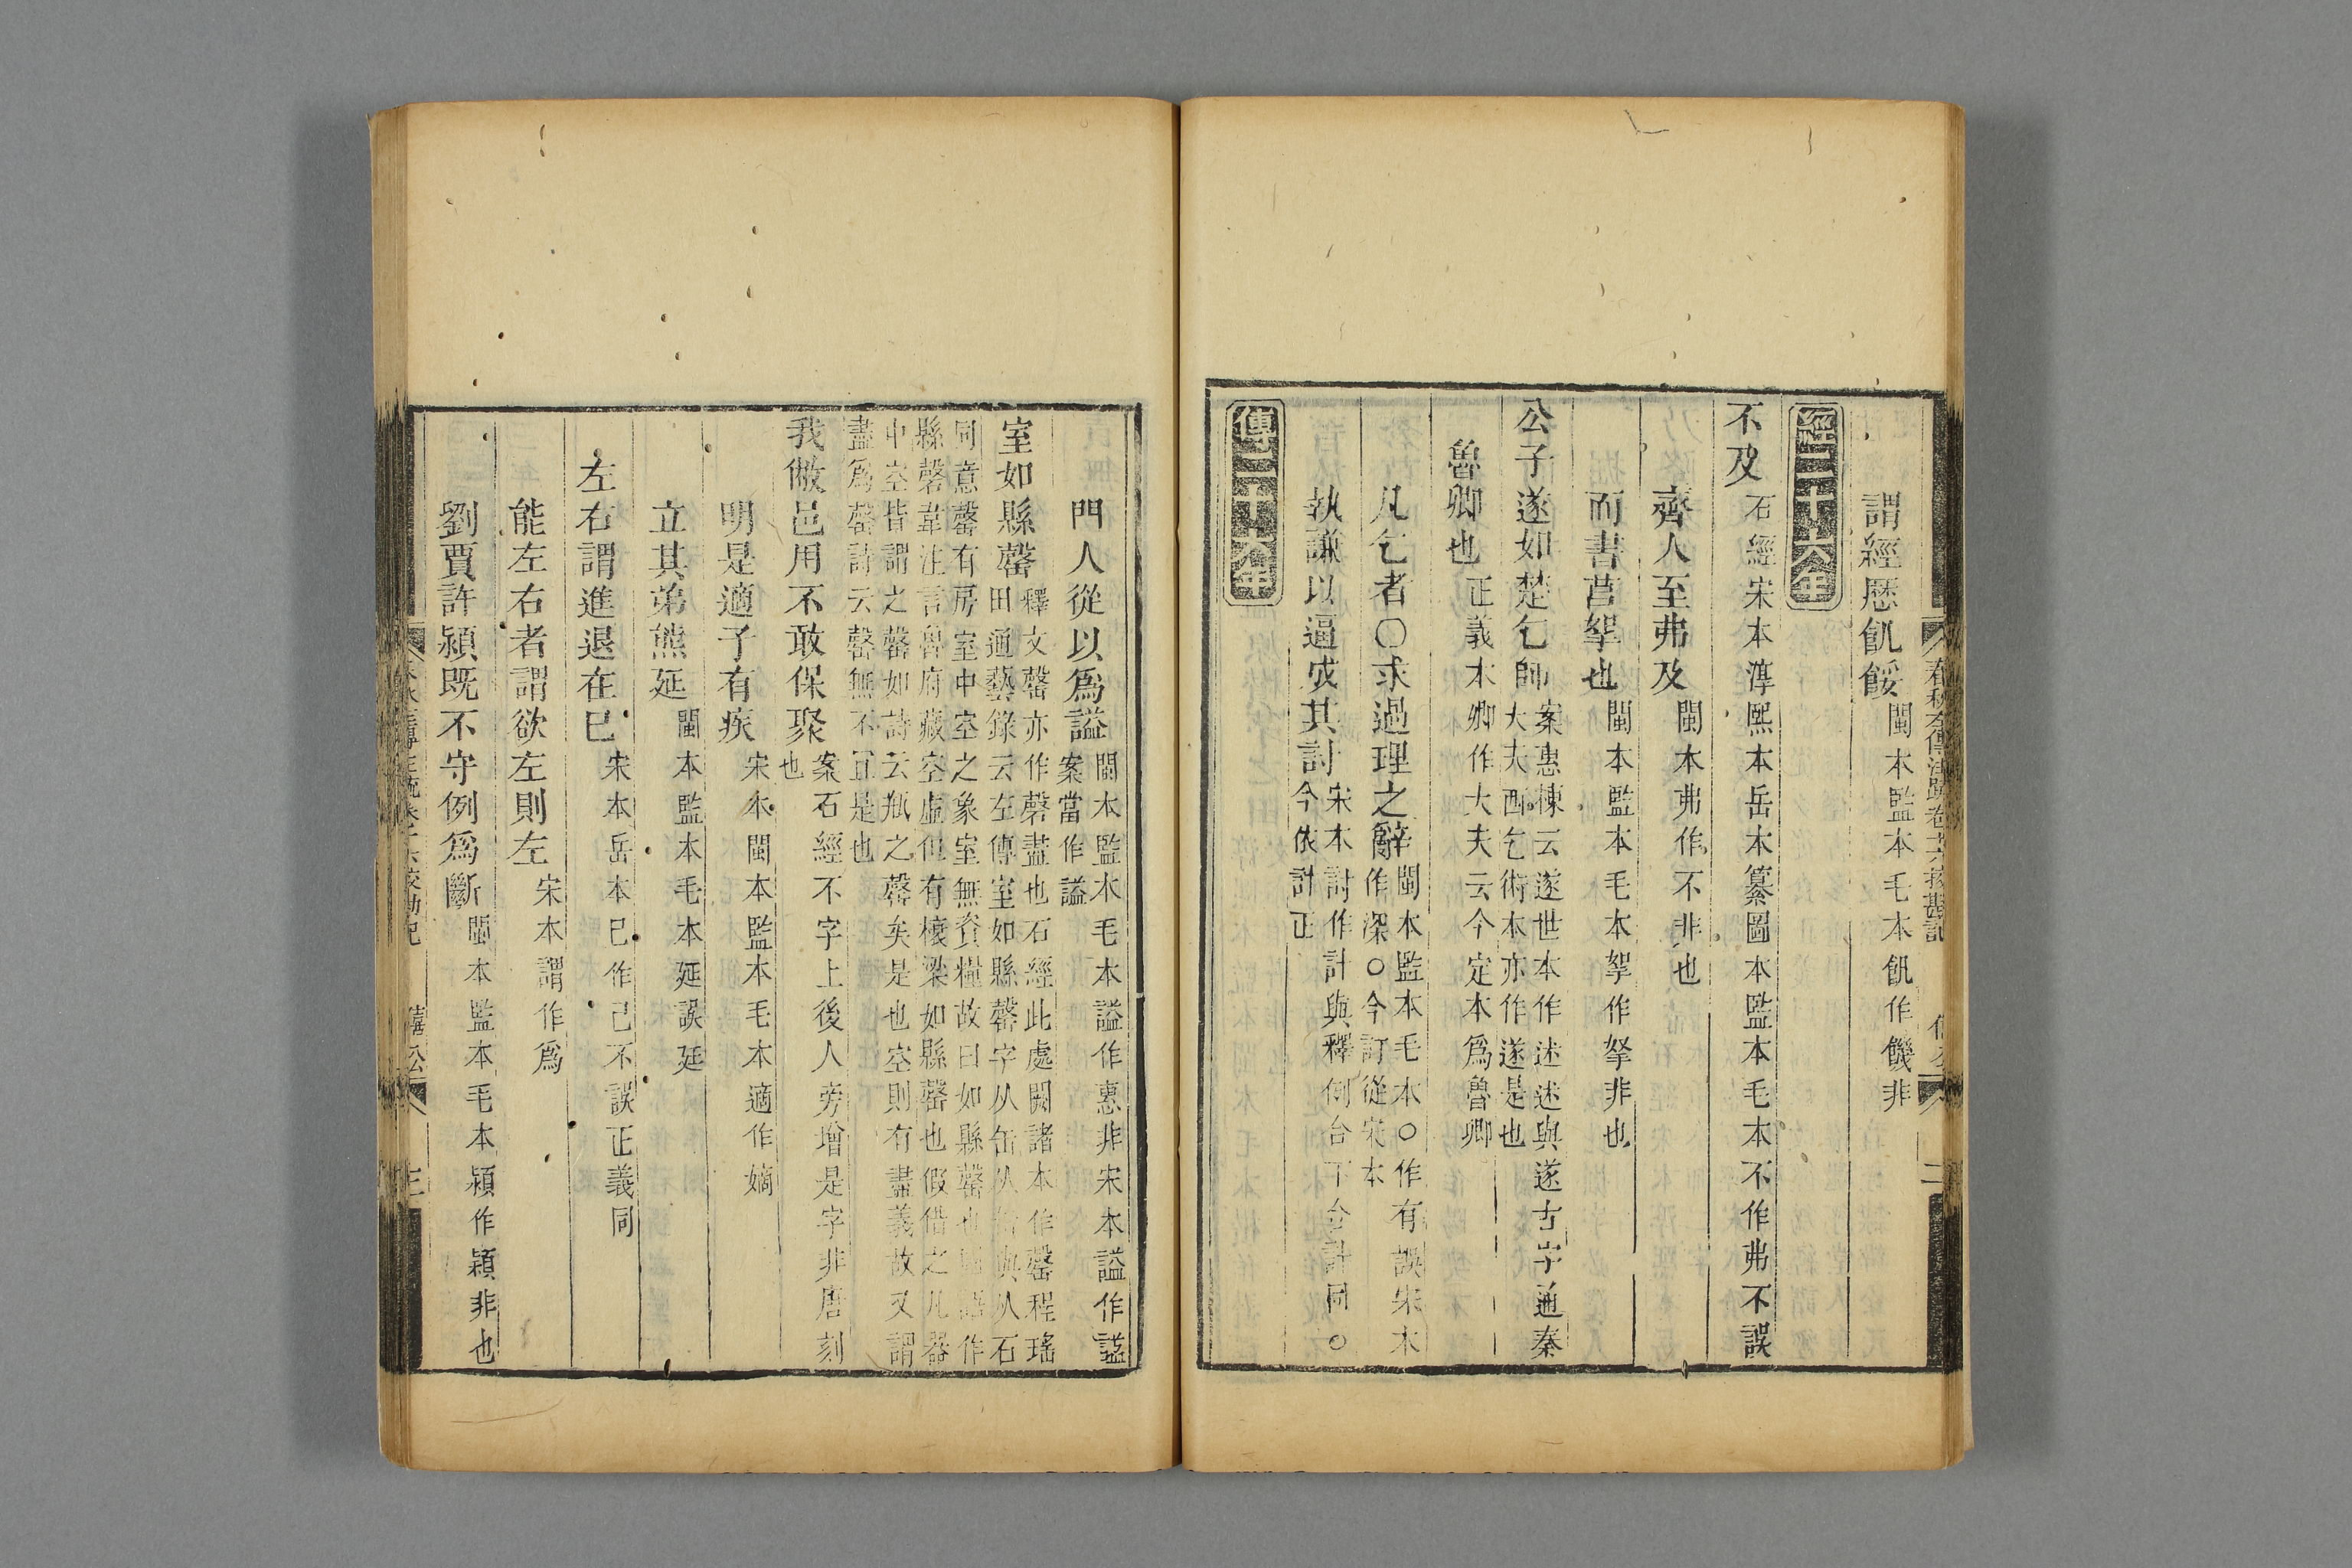 春秋左傳注疏卷十六挍勘記
二
謂經歷飢餒閩本監本毛本飢作饑非
經二十六年
不及石經宋本淳熙本岳本纂圖本監本毛本不作弗不誤
齊人至弗及閩本弗作不非也
而書莒挐也閩本監本毛本挐作拏非也
公子遂如楚乞師案惠棟云遂世本作述述與遂古字通秦
大夫西乞術本亦作遂是也
魯卿也正義本卿作大夫云今定本爲魯卿
凡乞者○求過理之辭閩本監本毛本○作有誤宋本
作深○今訂從宋本
執謙以逼成其討宋本討作計與釋例合下合計同○
今依計正
傳二十六年
門人從以爲謚閩本監本毛本謚作惠非宋本謚作諡
案當作諡
室如縣罄釋文罄亦作磬盡也石經此處闕諸本作罄程瑤
田通藝錄云左傳室如縣罄字从缶从殸與从石
同意罄有房室中空之象室無資糧故曰如縣罄也
縣磬韋注言魯府藏空虛但有榱梁如縣罄也假借之凡器
中空皆謂之罄如詩云瓶之罄矣是也空則有盡義故又謂
盡爲罄詩云罄無不宜是也
我敝邑用不敢保聚案石經不字上後人旁增是字非唐刻
也
明是適子有疾宋本閩本監本毛本適作嫡
立其弟熊延閩本監本毛本延誤廷
左右謂進退在已宋本岳本已作己不誤正義同
能左右者謂欲左則左宋本謂作爲
劉賈許潁既不守例爲斷閩本監本毛本潁作穎非也
僖公
三